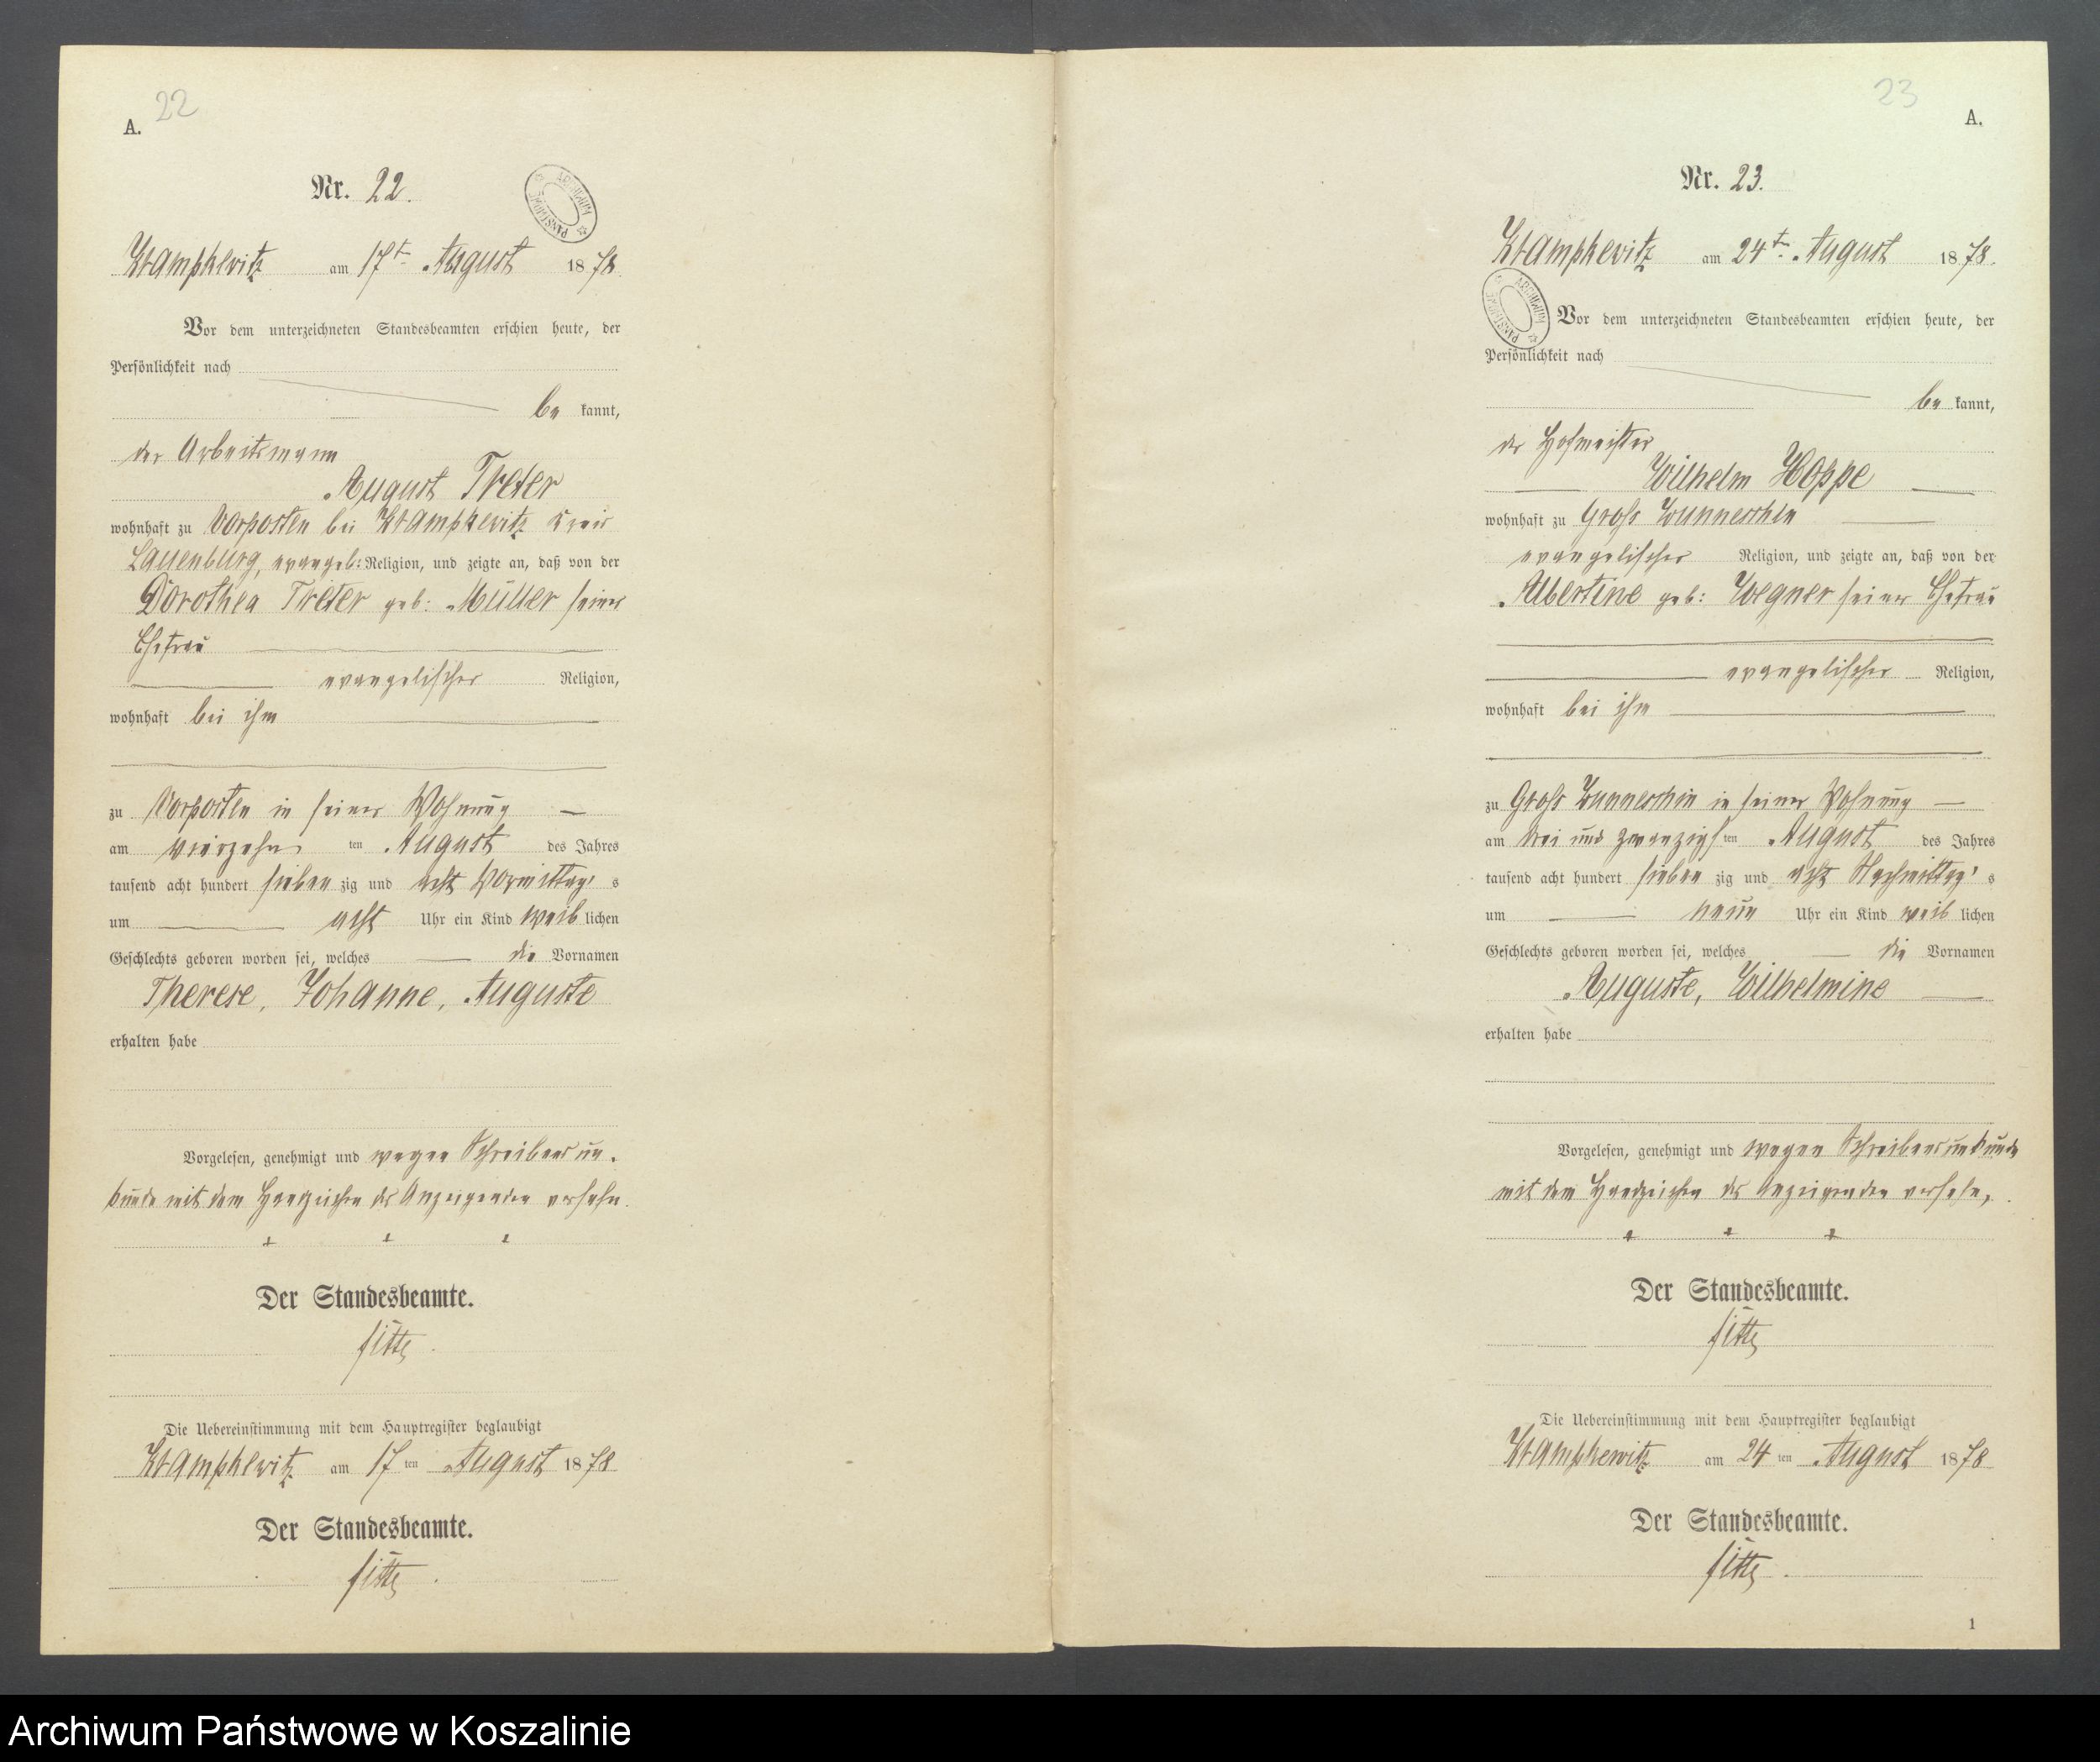 22
A.
Nr. 22.
Krampkewitz am 17t. August 1878.
Vor dem unterzeichneten Standesbeamten erschien heute, der
Persönlichkeit nach
be kannt,
der Arbeitsmann
August Treter
wohnhaft zu Vorposten bei Krampkewitz Kreis
Lauenburg, evangel: Religion, und zeigte an, daß von der
Dorothea Treter geb: Müller seiner
Ehefrau
evangelischer Religion,
wohnhaft bei ihm
zu Vorposten in seiner Wohnung
am vierzehn ten August des Jahres
tausend acht hundert sieben zig und acht Vormittag s
um acht Uhr ein Kind weib lichen
Geschlechts geboren worden sei, welches die Vornamen
Therese, Johanne, Auguste
erhalten habe
Vorgelesen, genehmigt und wegen Schreibens un-
kunde mit dem Handzeichen des Anzeigenden versehn.
+ + +
Der Standesbeamte.
Die Uebereinstimmung mit dem Hauptregister beglaubigt
Krampkewitz am 17 ten August 1878
Der Standesbeamte.
23
A.
Nr. 23.
Krampkewitz am 24t. August 1878.
Vor dem unterzeichneten Standesbeamten erschien heute, der
Persönlichkeit nach
be kannt,
der Hofmeister
Wilhelm Hoppe
wohnhaft zu Groß Wunneschin
evangelischer Religion, und zeigte an, daß von der
Albertine geb: Wegner seiner Ehefrau
evangelischer Religion,
wohnhaft bei ihm
zu Groß Wunneschin in seiner Wohnung
am drei und zwanzigs ten August des Jahres
tausend acht hundert sieben zig und acht Nachmittag' s
um neun Uhr ein Kind weib lichen
Geschlechts geboren worden sei, welches die Vornamen
Auguste, Wilhelmine
erhalten habe
Vorgelesen, genehmigt und wegen Schreibensunkunde
mit dem Handzeichen des Anzeigenden versehn,
+ + +
Der Standesbeamte.
Die Uebereinstimmung mit dem Hauptregister beglaubigt
Krampkewitz am 24 ten August 1878
Der Standesbeamte.
1
ARCHIWUM PAŃSTWOWE
ARCHIWUM PAŃSTWOWE
Archiwum Państwowe w Koszalinie